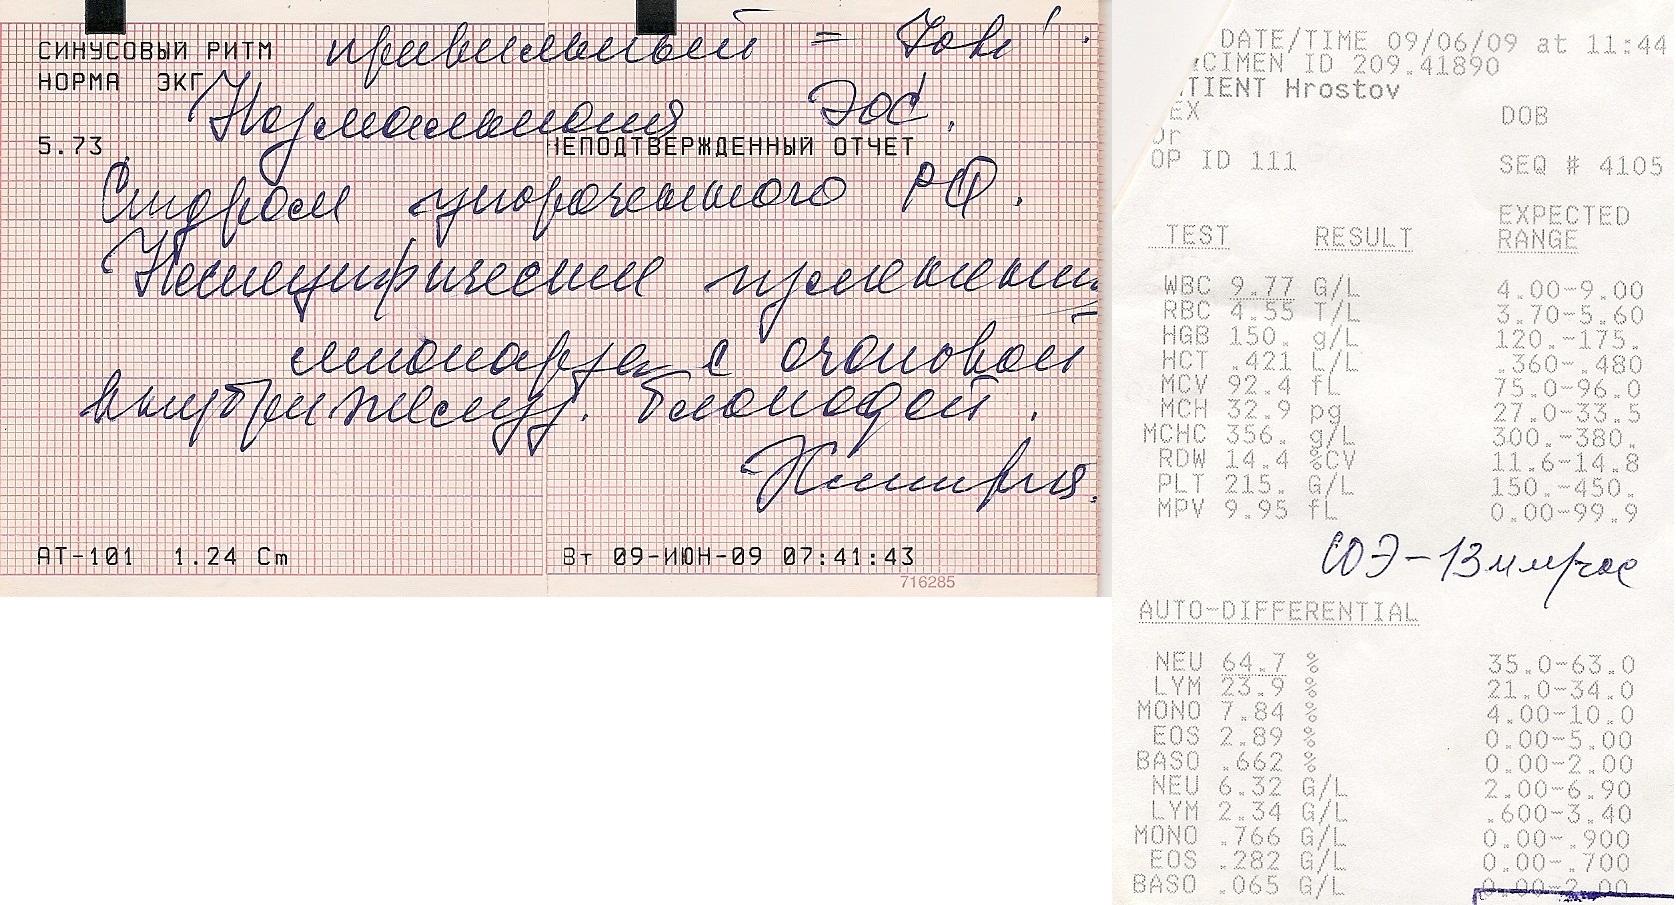 СИНУСОВЫЙ РИТМ правильный = 70 в 1'.
НОРМА ЭКГ
Нормальная ЭОС.
5.73 НЕПОДТВЕРЖДЕННЫЙ ОТЧЕТ
Синдром укороченного PQ.
Неспецифические
миокарда с очаговой
внутрижелуд. блокадой.
АТ-101 1.24 Cm Вт 09-ИЮН-09 07:41:43
716285
DATE/TIME 09/06/09 at 11:44
CIMEN ID 209.41890
TIENT Hrostov
EX DOB
Dr
OP ID 111 SEQ # 4105
EXPECTED
TEST RESULT RANGE
WBC 9.77 G/L 4.00-9.00
RBC 4.55 T/L 3.70-5.60
HGB 150. g/L 120.-175.
HCT .421 L/L .360-.480
MCV 92.4 fL 75.0-96.0
MCH 32.9 pg 27.0-33.5
MCHC 356. g/L 300.-380.
RDW 14.4 %CV 11.6-14.8
PLT 215. G/L 150.-450.
MPV 9.95 fL 0.00-99.9
СОЭ-13 мм/час
AUTO-DIFFERENTIAL
NEU 64.7 % 35.0-63.0
LYM 23.9 % 21.0-34.0
MONO 7.84 % 4.00-10.0
EOS 2.89 % 0.00-5.00
BASO .662 % 0.00-2.00
NEU 6.32 G/L 2.00-6.90
LYM 2.34 G/L .600-3.40
MONO .766 G/L 0.00-.900
EOS .282 G/L 0.00-.700
BASO .065 G/L 0.00-2.00